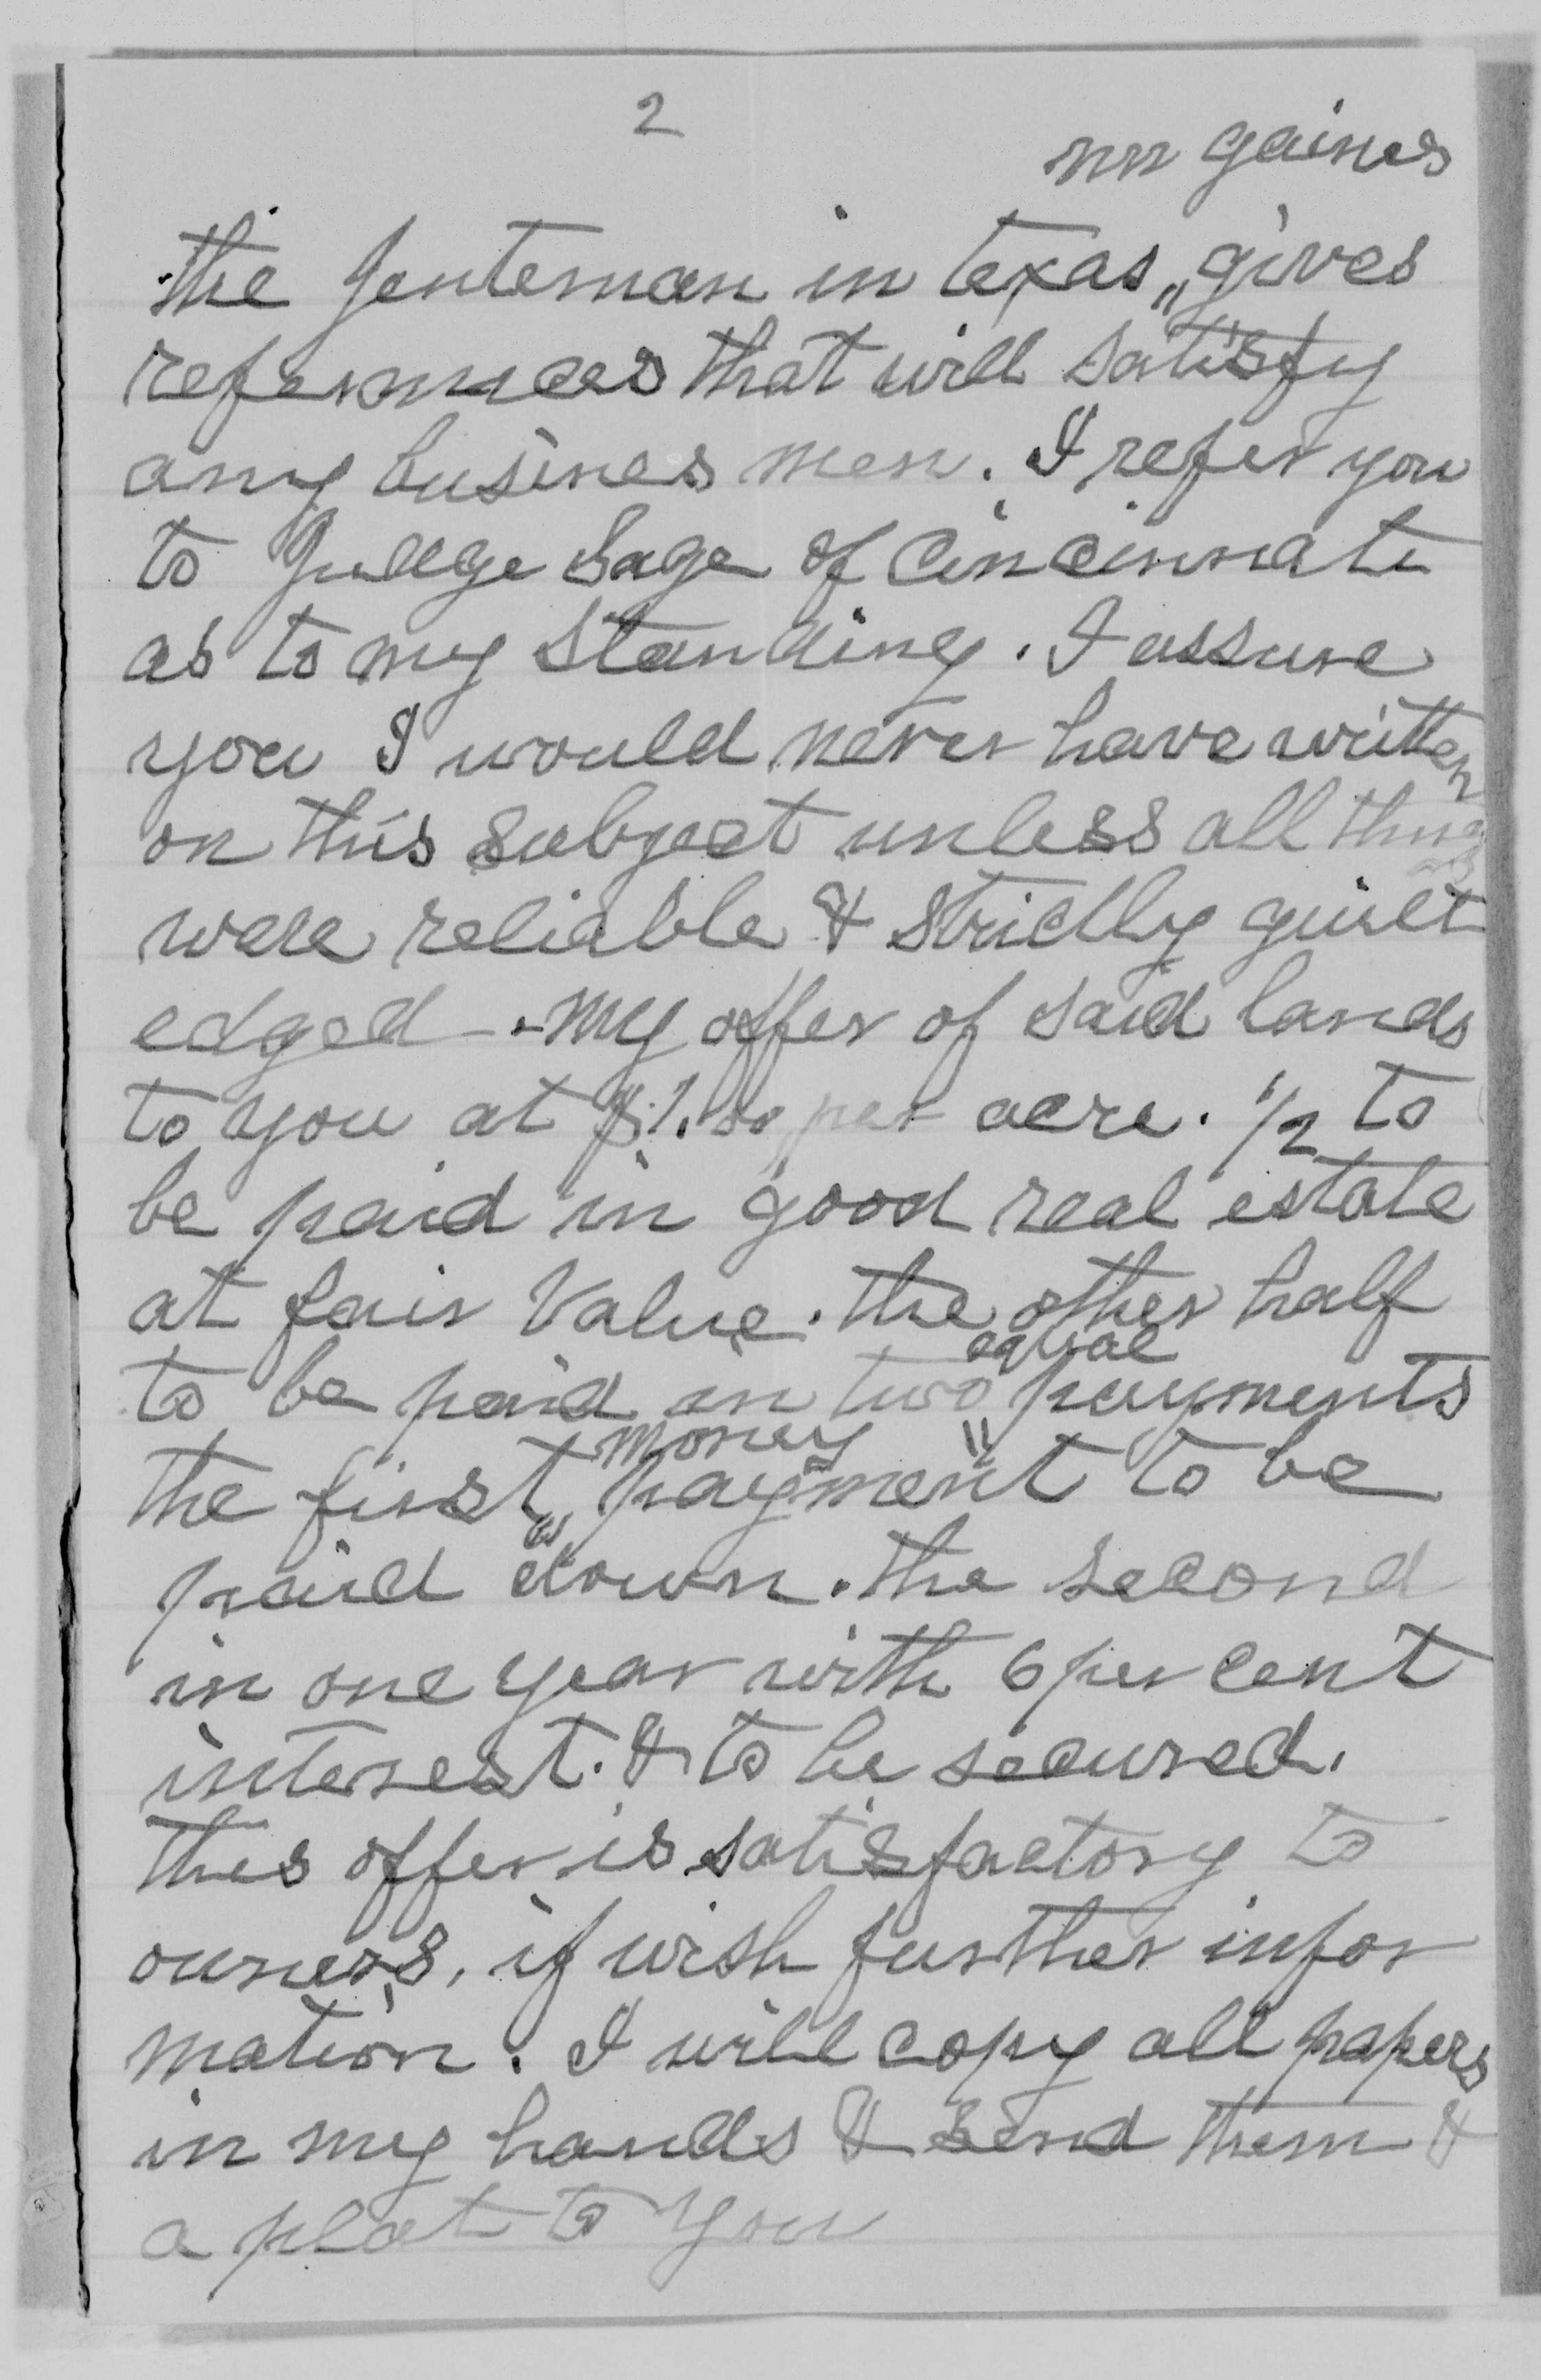 2
mr gaines
the genteman in texas "gives
refernnces that will satisfy
any busines men. I refer you
to Judge Sage of Cincinnati
as to my Standing. I assure
you I would never have written
on this subject unless all things
ware reliable & strictly guilt
edged. my offer of said lands
to you at $1.00 per acre. 1/2 to
be paid in good real estate
at fair Value. the other half
equal
to be paid in two payments
money "
the first " payment to be
paid down. the second
in one year with 6 per cent
interest. & to be secured.
this offer is satisfactory to
owners, if wish further infor
mation. I will copy all papers
in my hands & send them &
a plat to you